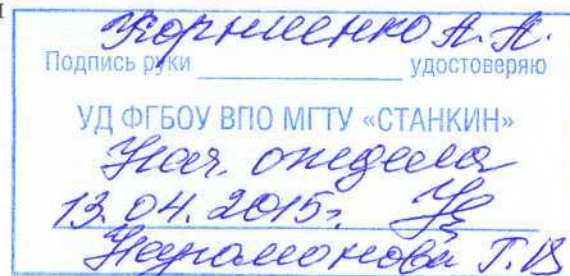 Корниенко А. А.
Подпись руки удостоверяю
УД ФГБОУ ВПО МГТУ «СТАНКИН»
Нач. отдела
13.04.2015г.
Т. В